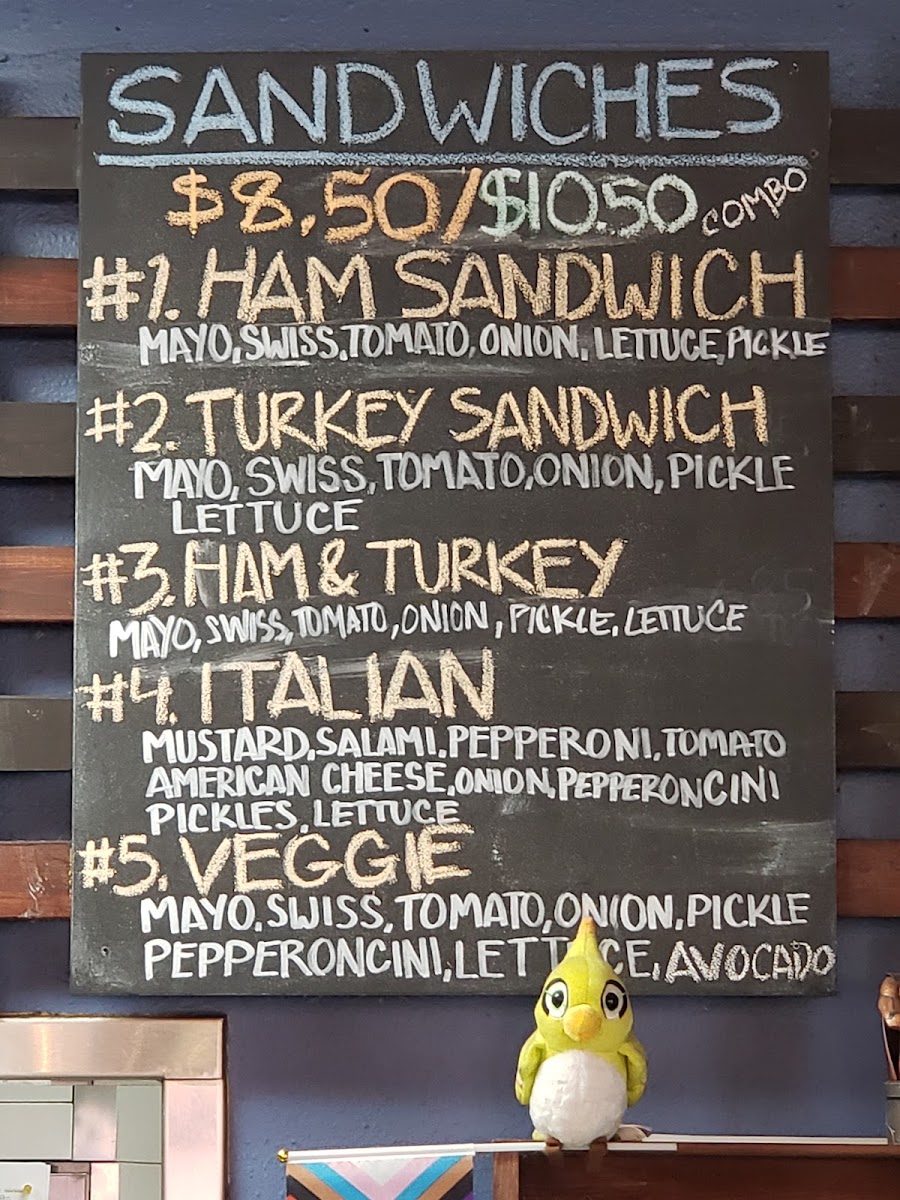 SANDWICHES
$8.50/$10.50 COMBO
#1. HAM SANDWICH
MAYO, SWISS, TOMATO, ONION, LETTUCE, PICKLE
#2. TURKEY SANDWICH
MAYO, SWISS, TOMATO, ONION, PICKLE
LETTUCE
#3. HAM & TURKEY
MAYO, SWISS, TOMATO, ONION, PICKLE, LETTUCE
#4. ITALIAN
MUSTARD, SALAMI, PEPPERONI, TOMATO
AMERICAN CHEESE, ONION, PEPPERONCINI
PICKLES, LETTUCE
#5. VEGGIE
MAYO, SWISS, TOMATO, ONION, PICKLE
PEPPERONCINI, LETTUCE, AVOCADO